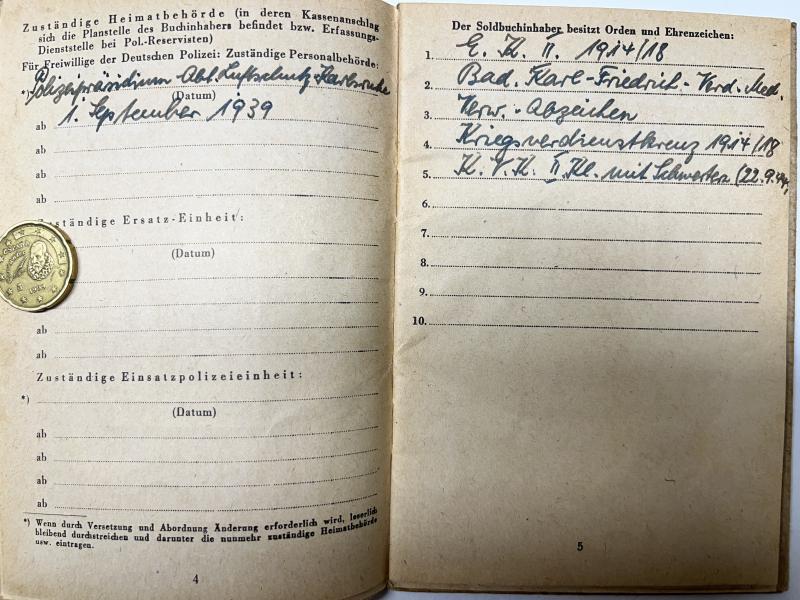 Zuständige Heimatbehörde (in deren Kassenanschlag
sich die Planstelle des Buchinhabers befindet bzw. Erfassungs-
Dienststelle bei Pol.-Reservisten)
Für Freiwillige der Deutschen Polizei: Zuständige Personalbehörde:
*) Polizeipräsidium Abt. Luftschutz Karlsruhe
(Datum)
ab 1. September 1939
ab
ab
ab
Zuständige Ersatz-Einheit:
(Datum)
ab
ab
Zuständige Einsatzpolizeieinheit:
*)
(Datum)
ab
ab
ab
ab
*) Wenn durch Versetzung und Abordnung Änderung erforderlich wird, leserlich
bleibend durchstreichen und darunter die nunmehr zuständige Heimatbehörde
usw. eintragen.
4
Der Soldbuchinhaber besitzt Orden und Ehrenzeichen:
1. E. K. II. 1914/18
2. Bad. Karl-Friedrich-Verd. Med.
3. Verw.-Abzeichen
4. Kriegsverdienstkreuz 1914/18
5. K. V. K. II. Kl. mit Schwerter (22.9.44)
6.
7.
8.
9.
10.
5
ESPAÑA